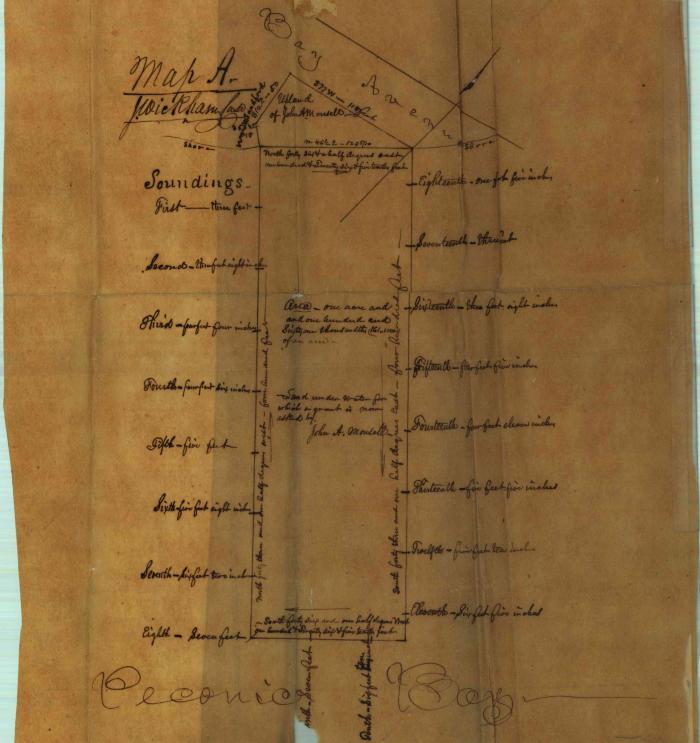 Bay Avenue
Map A.
Wickham
Upland
of John A Monsell
Shore
Shore
North forty six & a half degrees east
one hundred & twenty six & five tenths feet
Soundings
First — three feet
Second — three feet eight inch
Third — four feet four inches
Fourth — four feet six inches
Fifth — five feet
Sixth — five feet eight inches
Seventh — six feet two inch
Eighth — Seven feet
Eighteenth — one foot five inches
Seventeenth — three feet
Sixteenth — three feet eight inches
Fifteenth — four feet five inches
Fourteenth — four feet eleven inches
Thirteenth — five feet five inches
Twelfth — five feet ten inches
Eleventh — Six feet five inches
Area — one acre and
and one hundred and
Sixty one thousandths
of an acre
Land under Water for
which a grant is now
asked by
John A. Monsell
North forty three and one half degrees west — four hundred feet
South forty three and one half degrees east — four hundred feet
South forty six and one half degrees West
one hundred & twenty six & five tenths feet
Ninth — Seven feet
Tenth — Six feet
Peconic Bay